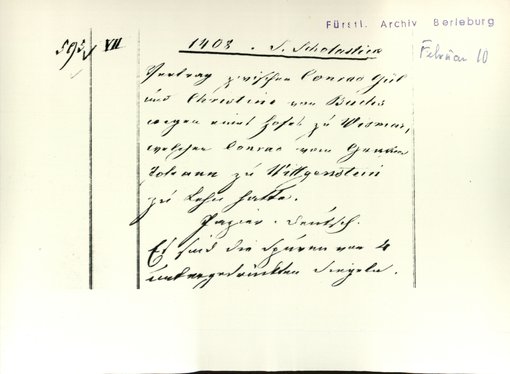 Fürstl. Archiv Berleburg
VII 1408. S. Scholastica
Februar 10
Vertrag zwischen Conrad
und Christine von
wegen eines Hofes zu
welchen Conrad vom Grafen
Johann zu Wittgenstein
zu Lehn hatte.
Papier. deutsch.
Es sind die Spuren von 4
untergedrückten Siegeln.